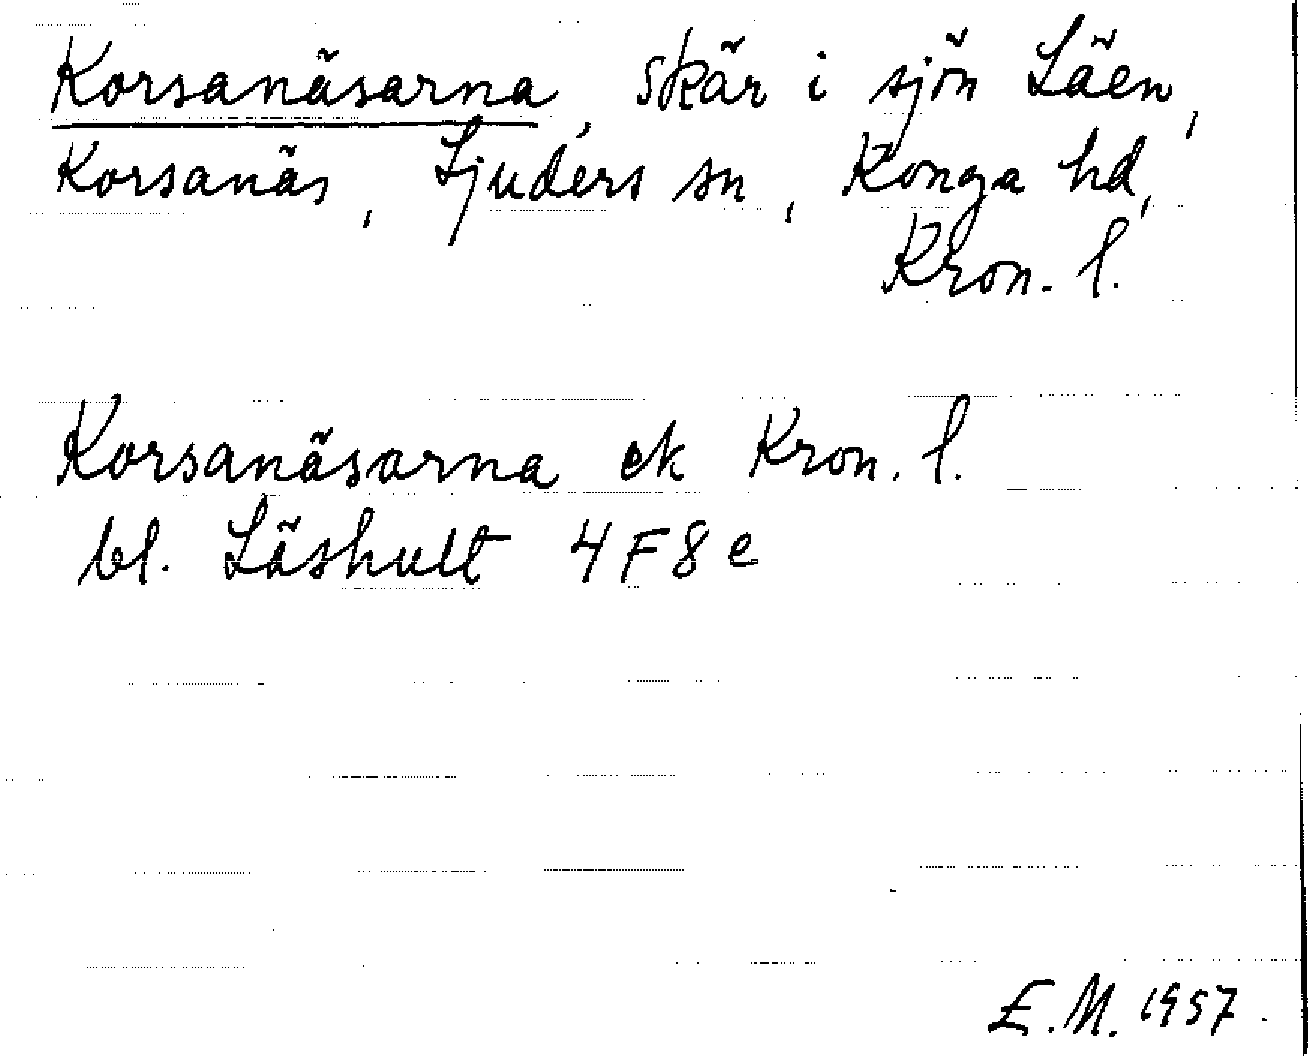 Korsanäsarna, skär i sjön Läen,
Korsanäs, Ljuders sn, Konga hd,
Kron. l.
Korsanäsarna ek Kron. l.
bl. Läshult 4F8e
E.M. 1957.